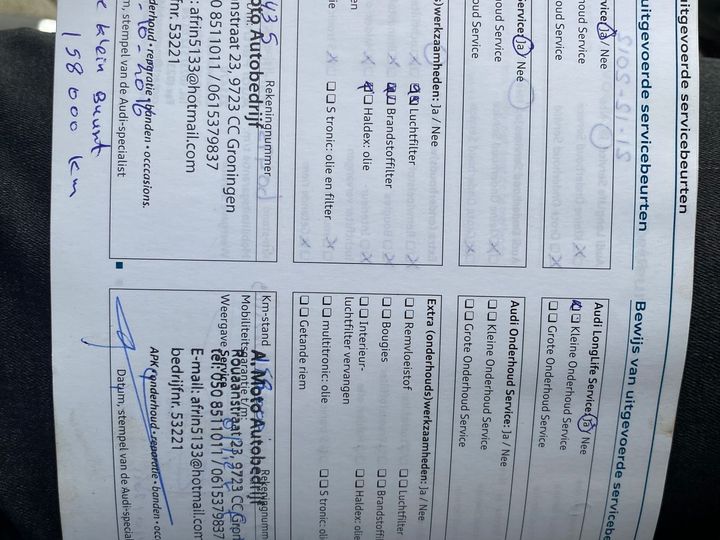 uitgevoerde servicebeurten
uitgevoerde servicebeurten
Service: Ja / Nee
oud Service
oud Service
Service: Ja / Nee
oud Service
oud Service
)werkzaamheden: Ja / Nee
Luchtfilter
Brandstoffilter
Haldex: olie
S tronic: olie en filter
Rekeningnummer
oto Autobedrijf
nstraat 23, 9723 CC Groningen
0 8511011 / 0615379837
: afrin5133@hotmail.com
fnr. 53221
derhoud • reparatie • banden • occasions.
m, stempel van de Audi-specialist
klein Buurt
158000 km
Bewijs van uitgevoerde servicebe
Audi LongLife Service: Ja / Nee
Kleine Onderhoud Service
Grote Onderhoud Service
Audi Onderhoud Service: Ja / Nee
Kleine Onderhoud Service
Grote Onderhoud Service
Extra (onderhouds)werkzaamheden: Ja / Nee
Remvloeistof
Luchtfilter
Bougies
Brandstoffil
Interieur-
luchtfilter vervangen
Haldex: olie
multitronic: olie
S tronic: oli
Getande riem
Km-stand
Rekeningnumm
Mobiliteitsgarantie t/m:
Weergave Service
A. Moto Autobedrijf
Rouaanstraat 23, 9723 CC Gron
Tel: 050 8511011 / 0615379837
E-mail: afrin5133@hotmail.com
bedrijfnr. 53221
APK • onderhoud • reparatie • banden • occ
Datum, stempel van de Audi-special